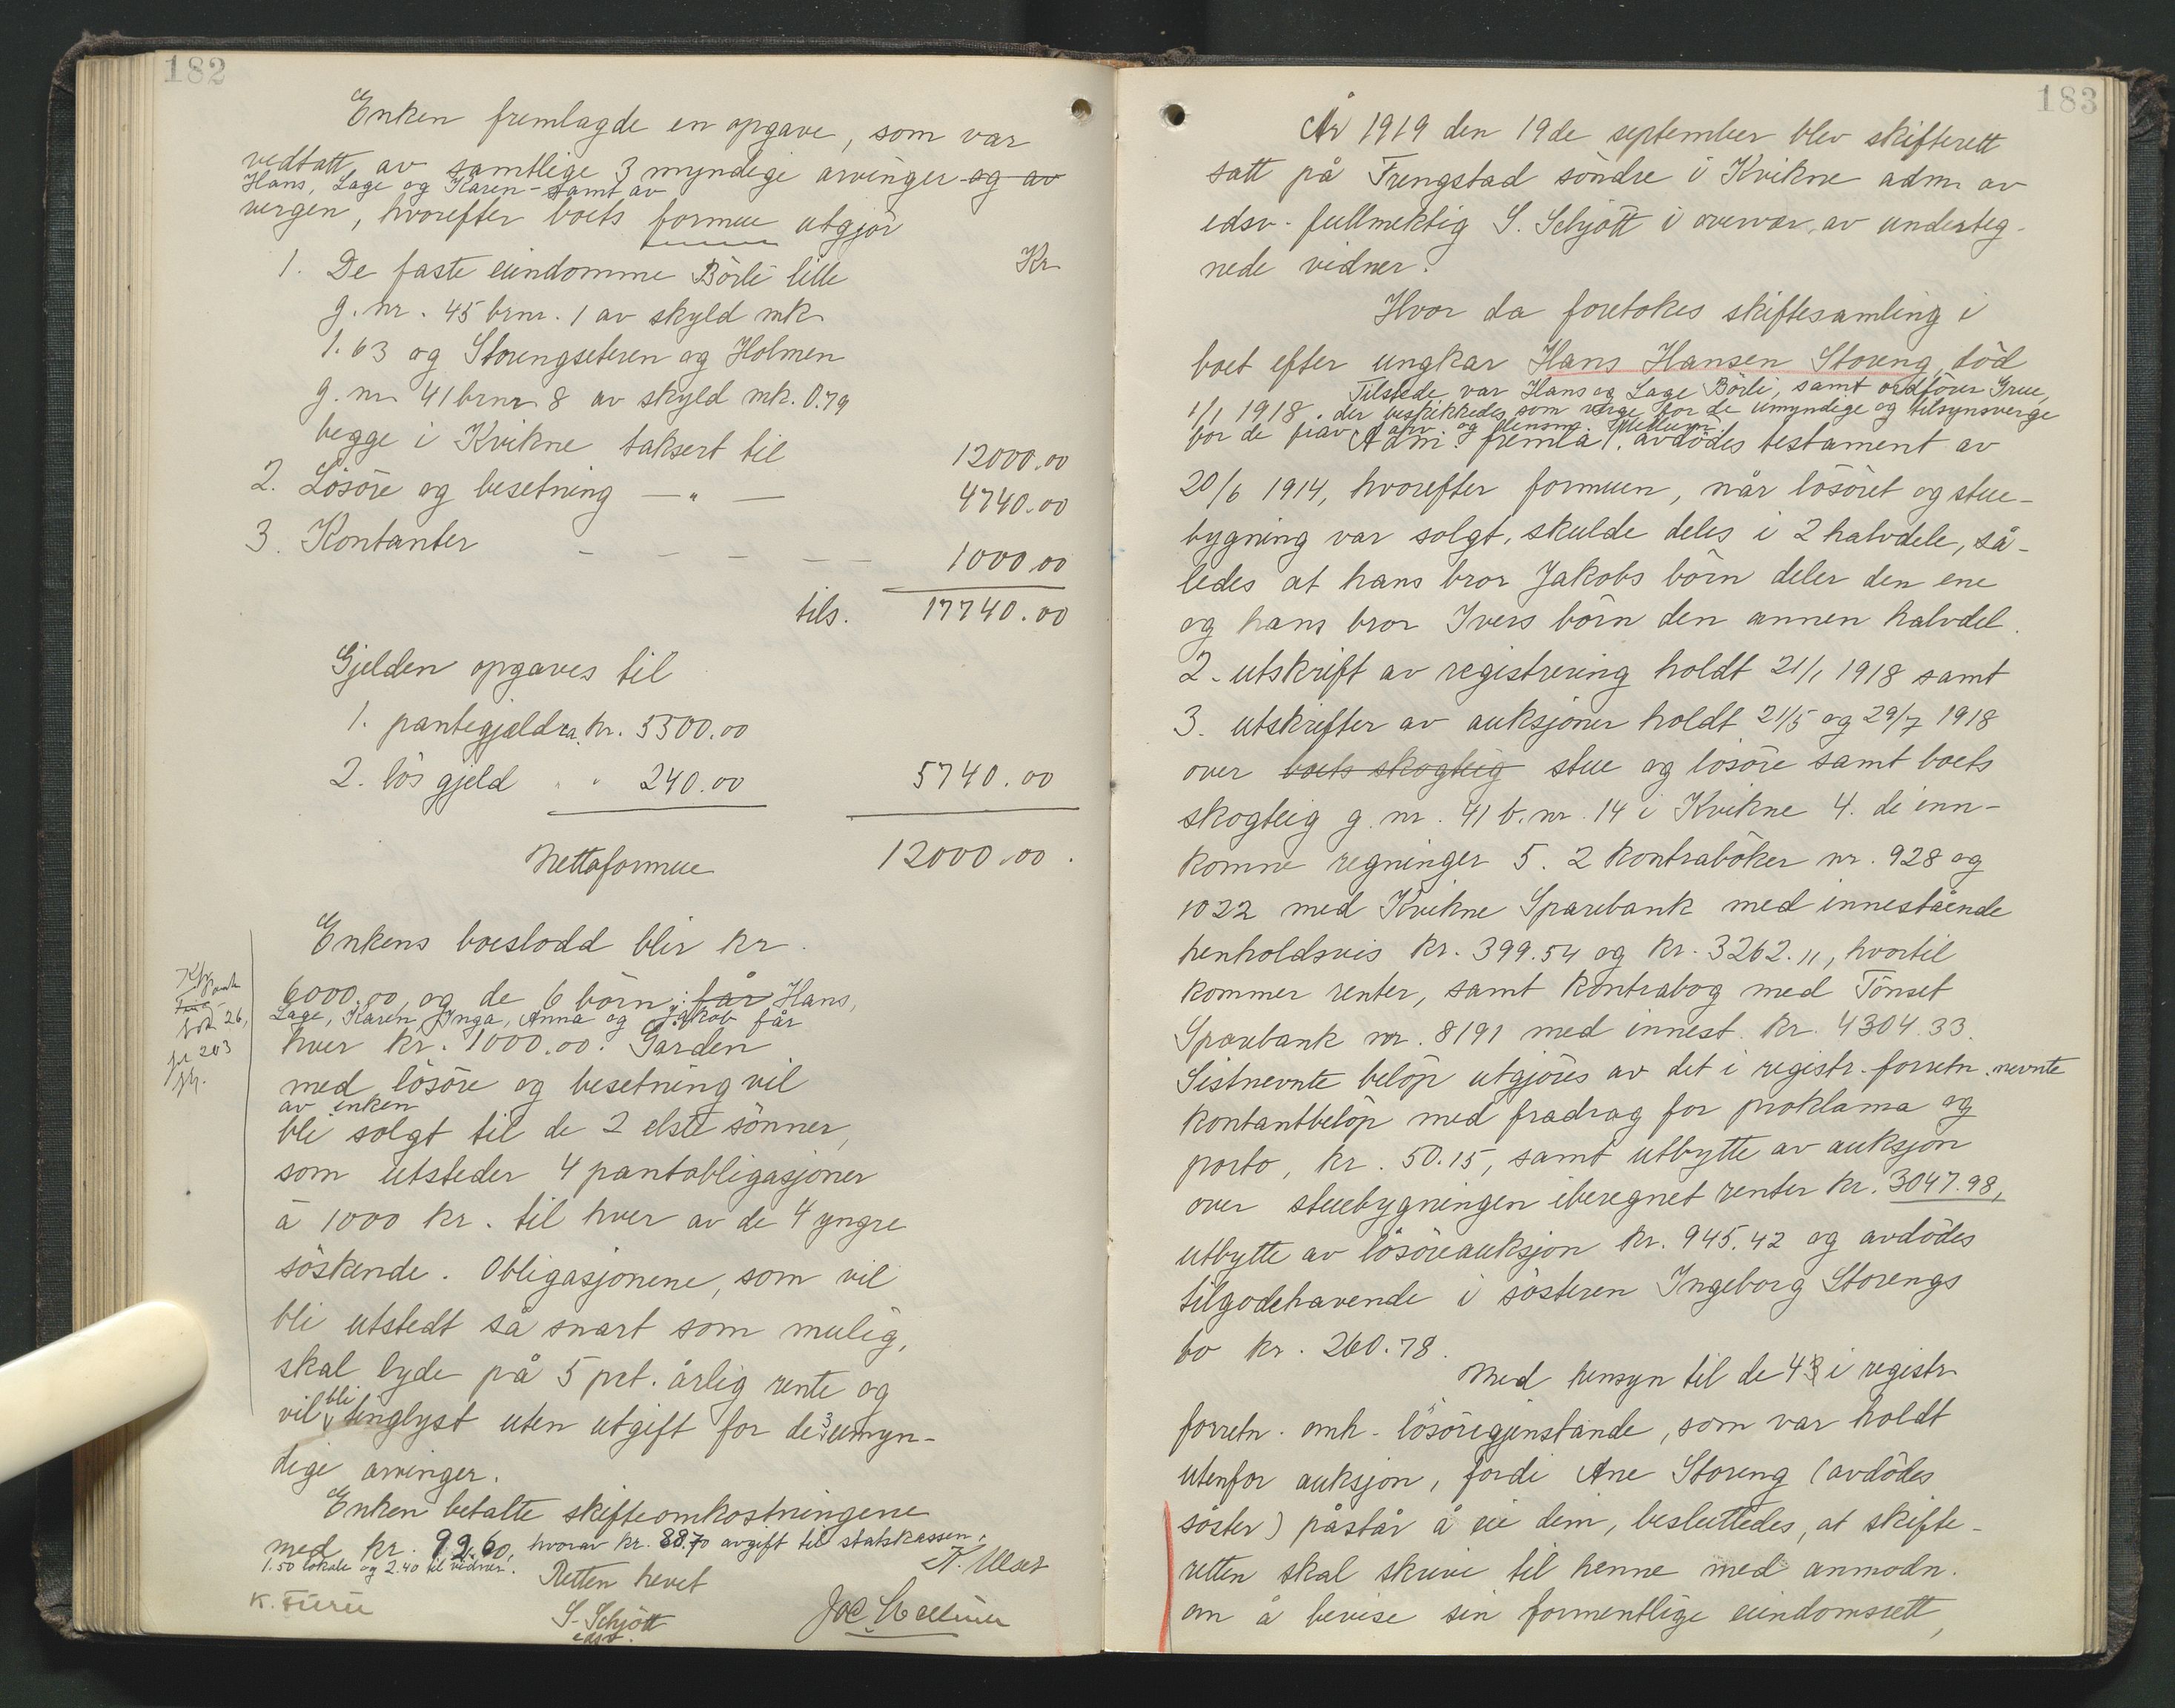 182
Enken fremlagde en opgave, som var
vedtatt av samtlige 3 myndige arvinger og av
Hans, Lage og Karen - samt av
vergen, hvorefter boets formue utgjör
Kr
1. De faste eiendomme Börli lille
g. nr. 45 brnr. 1 av skyld mk.
1.63 og Storengseteren og Holmen
g. nr. 41 brnr 8 av skyld mk. 0.79
begge i Kvikne taksert til 12000.00
2. Lösöre og besetning — " — 4740.00
3. Kontanter - - - - - 1000.00
tils. 17740.00
Gjelden opgaves til
1. pantegjeld kr. 5500.00
2. lös gjeld " " 240.00 5740.00
Nettoformue 12000.00.
Enkens boeslodd blir kr.
6000.00, og de 6 börn: får Hans,
Lage, Karen, Inga, Anna og Jakob får
hver kr. 1000.00. Garden
med lösöre og besetning vil
av enken
bli solgt til de 2 elste sönner,
som utsteder 4 pantobligasjoner
à 1000 kr. til hver av de 4 yngre
söskende. Obligasjonene, som vil
bli utstedt så snart som mulig,
skal lyde på 5 pct. årlig rente og
vil bli tinglyst uten utgift for de 3 umyn-
dige arvinger.
Enken betalte skifteomkostningene
med kr. 92.60, hvorav kr. 88.70 avgift til statskassen,
1.50 lokale og 2.40 til vidner.
Retten hevet
K. Furu
S. Schjött
edsv.
26,
203
183
År 1919 den 19de september blev skifterett
satt på Frengstad söndre i Kvikne adm. av
edsv. fullmektig S. Schjött i overvær av underteg-
nede vidner.
Hvor da foretokes skiftesamling i
boet efter ungkar Hans Hansen Storeng, död
Tilstede var Hans og Lage Börli, samt ordförer Grue,
1/1 1918. der beskikkedes som verge for de umyndige og tilsynsverge
for de frav. arv. og lensm.
Adm. fremla 1. avdödes testament av
20/6 1914, hvorefter formuen, når lösöret og stue-
bygning var solgt, skulde deles i 2 halvdele, så-
ledes at hans bror Jakobs börn deler den ene
og hans bror Ivers börn den annen halvdel.
2. utskrift av registrering holdt 21/1 1918 samt
3. utskrifter av auksjoner holdt 21/5 og 29/7 1918
over boets skogteig stue og lösöre samt boets
skogteig g. nr. 41 b. nr. 14 i Kvikne 4. de inn-
komne regninger 5. 2 kontraböker nr. 928 og
1022 med Kvikne Sparebank med innestående
henholdsvis kr. 399.54 og kr. 3262.11, hvortil
kommer renter, samt kontrabog med Tönset
Sparebank nr. 8191 med innest. kr. 4304.33.
Sistnevnte belöp utgjöres av det i registr. forretn. nevnte
kontantbelöp med fradrag for proklama og
porto, kr. 50.15, samt utbytte av auksjon
over stuebygningen iberegnet renter kr. 3047.98,
utbytte av lösöreauksjon kr. 945.42 og avdödes
tilgodehavende i sösteren Ingeborg Storengs
bo kr. 260.78.
Med hensyn til de 4 i registr.
forretn. omh. lösöregjenstande, som var holdt
utenfor auksjon, fordi Ane Storeng (avdödes
söster) påstår å eie dem, besluttedes, at skifte-
retten skal skrive til henne med anmodn.
om å bevise sin formentlige eiendomsrett,